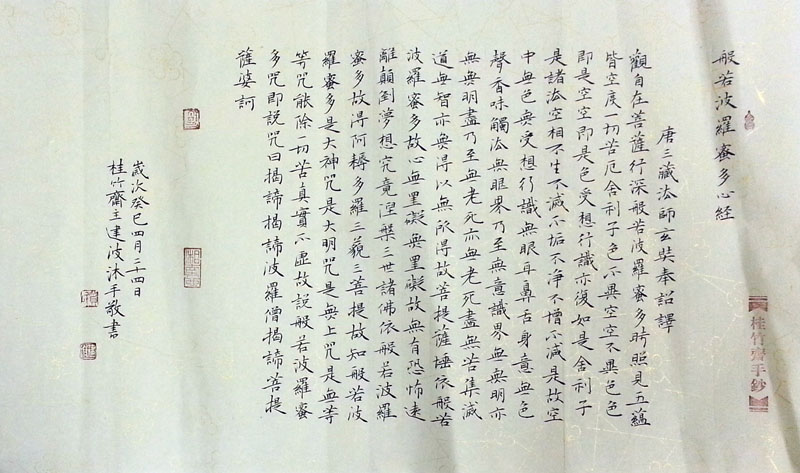 桂竹齋手鈔
般若波羅蜜多心経
唐三藏法師玄奘奉詔譯
觀自在菩薩行深般若波羅蜜多時照見五蘊
皆空度一切苦厄舍利子色不異空空不異色色
即是空空即是色受想行識亦復如是舍利子
是諸法空相不生不滅不垢不淨不增不減是故空
中無色無受想行識無眼耳鼻舌身意無色
聲香味觸法無眼界乃至無意識界無無明亦
無無明盡乃至無老死亦無老死盡無苦集滅
道無智亦無得以無所得故菩提薩埵依般若
波羅蜜多故心無罣礙無罣礙故無有恐怖遠
離顛倒夢想究竟涅槃三世諸佛依般若波羅
蜜多故得阿耨多羅三藐三菩提故知般若波
羅蜜多是大神咒是大明咒是無上咒是無等
等咒能除一切苦真實不虛故說般若波羅蜜
多咒即說咒曰揭諦揭諦波羅僧揭諦菩提
薩婆訶
歲次癸巳四月二十四日
桂竹齋主建波沐手敬書